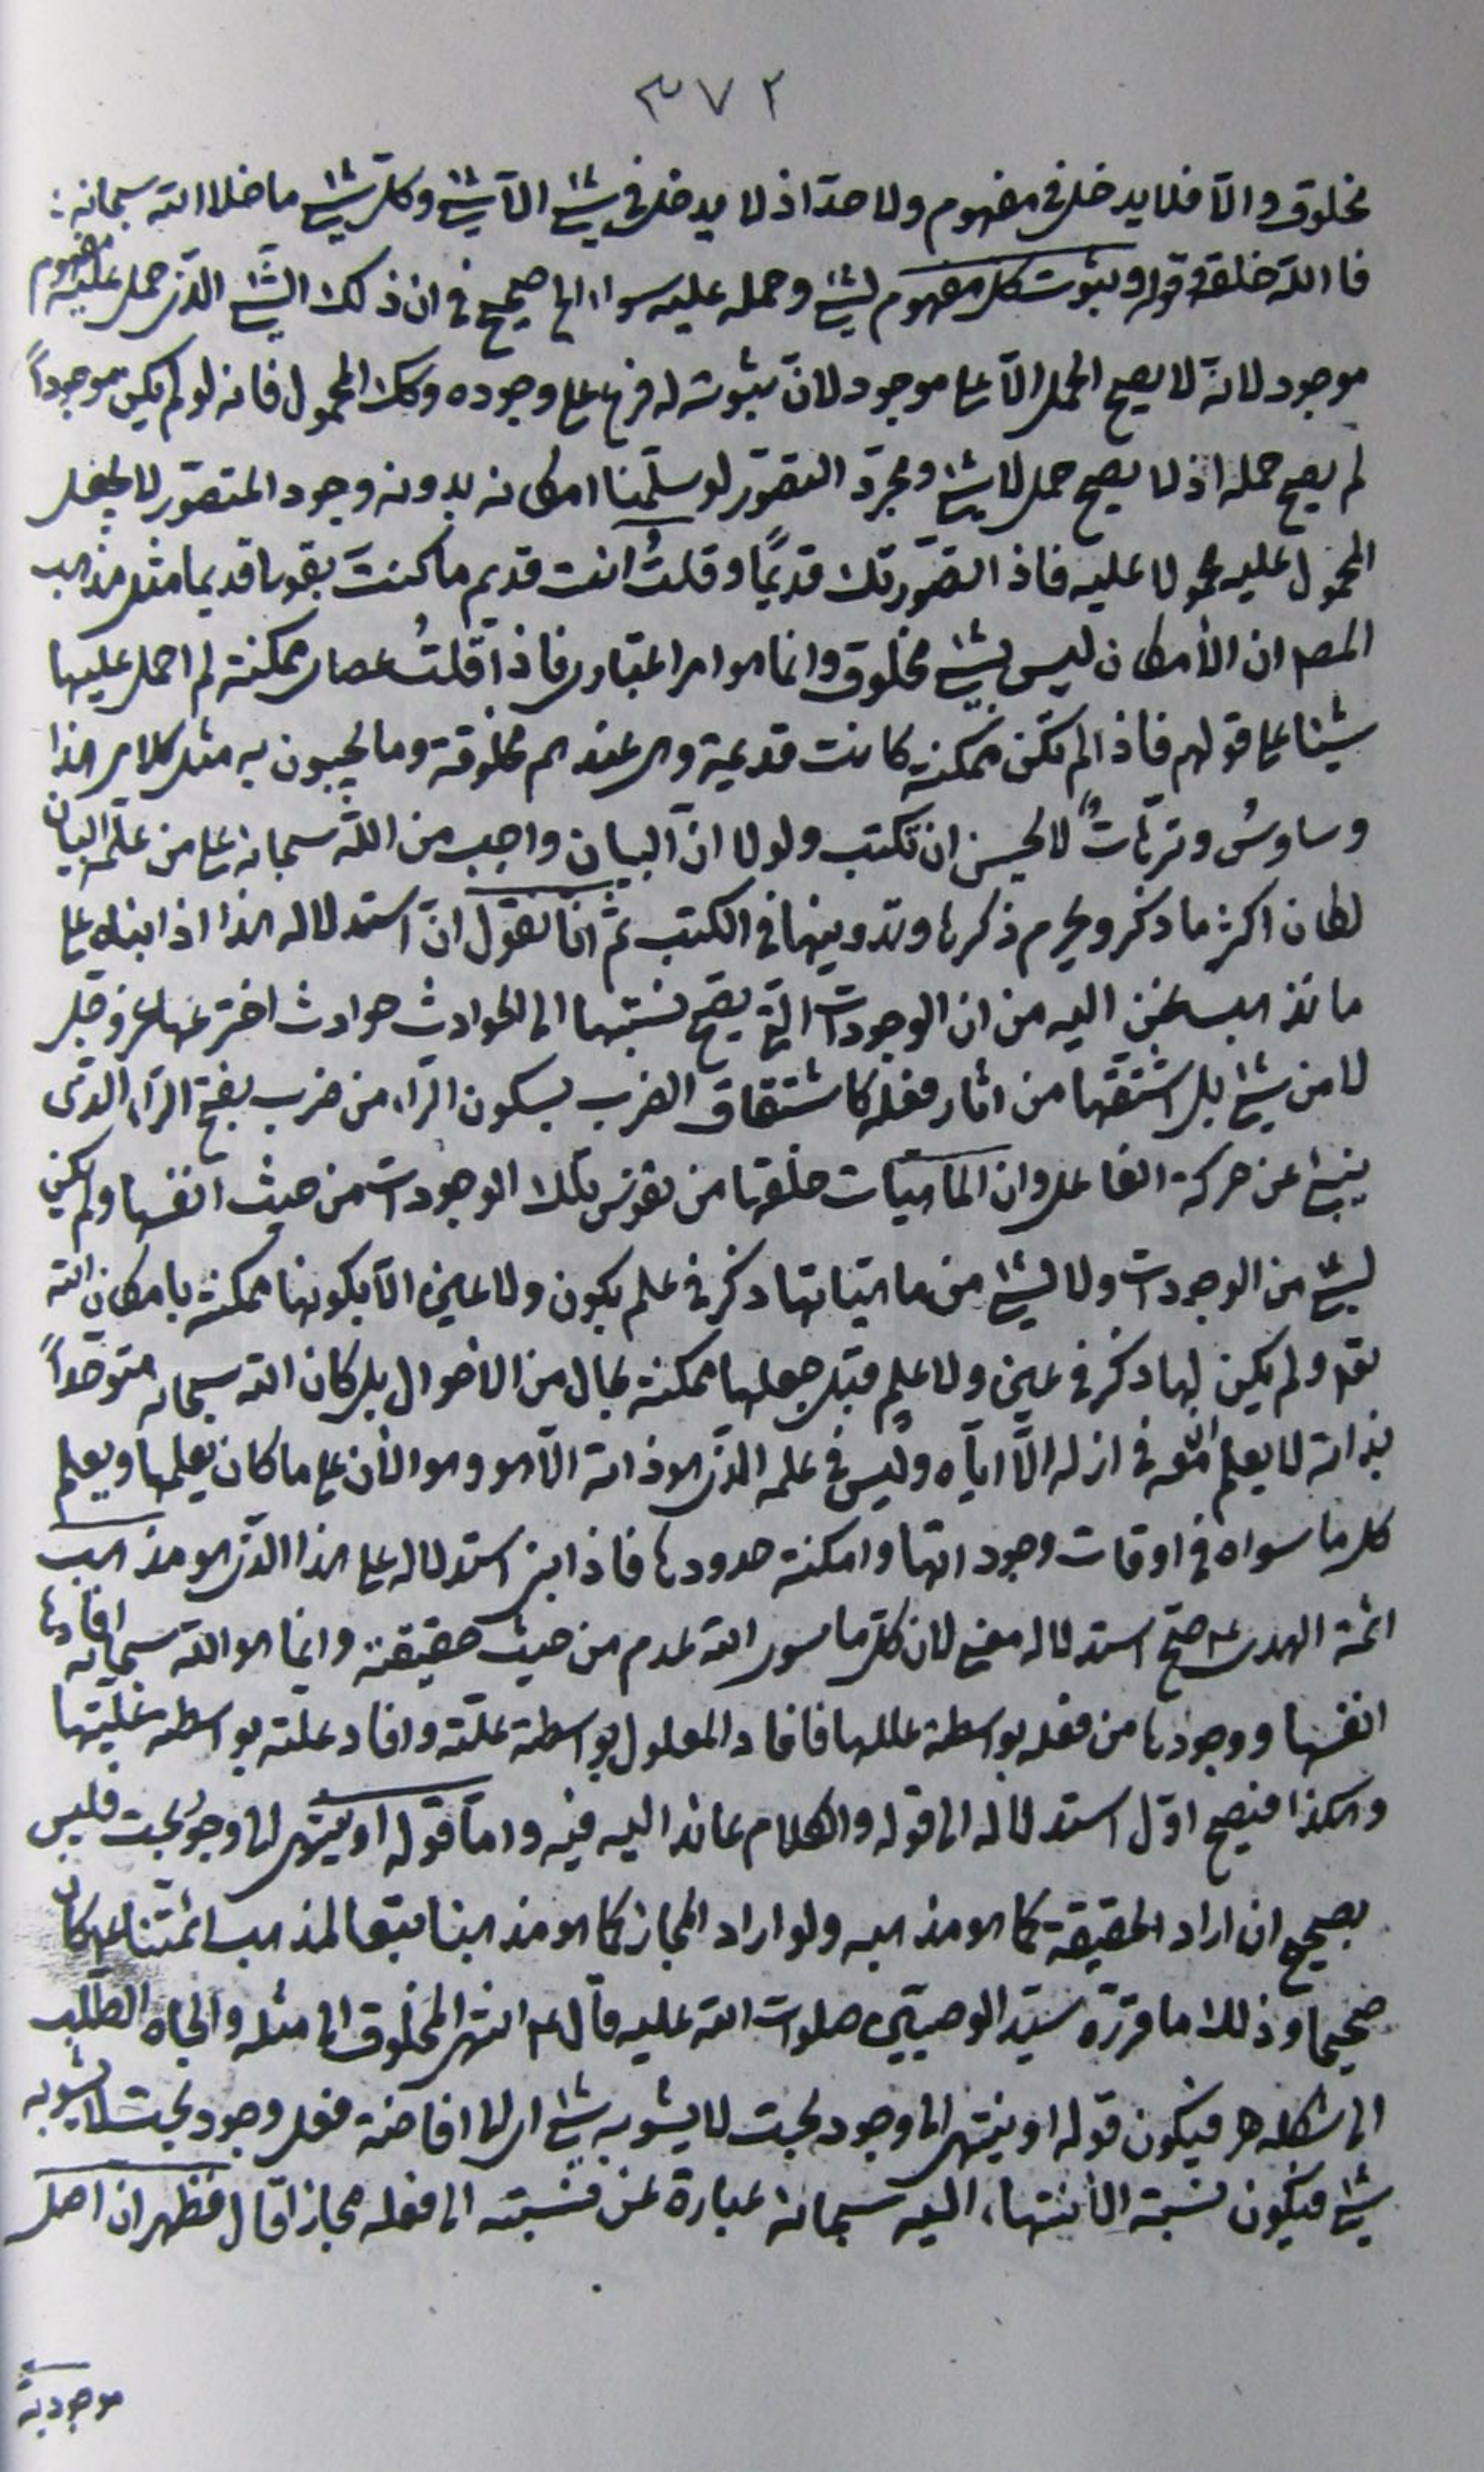 ٣٧٢
مخلوق والّا فلا يدخل فى مفهوم ولا حدّ اذ لا يدخل فى شئ الّا شئ وكلّ شئ ما خلا الله سبحانه :
فالله خلقه وقوله وثبوت كل مفهوم لشئ وحمله عليه سواء الخ صحيح فى ان ذلك الشئ الذى حمل عليه مفهوم
موجود لانه لا يصح الحمل الّا على موجود لانّ ثبوته له فرع على وجوده وكك المحمول فانه لو لم يكن موجوداً
لم يصح حمله اذ لا يصح حمل لا شئ ومجرّد التصوّر لو سلّمنا امكانه بدونه وجود المتصوّر لا يجعل
المحمول عليه محمولا عليه فاذا تصوّرتك قديمًا وقلتُ انت قديم ما كنتَ بقولى قديما مثل مذهب
المصـ ان الأمكان ليس بشئ مخلوق وانما هو امر اعتبارى فاذا قلتُ عصاى ممكنة لم احمل عليها
شيئا على قولهم فاذا لم تكن ممكنة كانت قديمة وهى عندهم مخلوقة وما يجيبون به مثل كلامى هذا
وساوسُ وترّهاتٌ لا يحسن ان تكتب ولولا انّ البيان واجب من الله سبحانه على من علّمه البيان
لكان اكثر ما ذكر ويحرم ذكرها وتدوينها فى الكتب ثمّ انّا نقول انّ استدلاله هذا اذا ابناه على
ما نذهب نحن اليه من ان الوجودات التى يصحّ نسبتها الى الحوادث حوادث اخترعها عز وجل
لا من شئ بل اشتقّها من اثار فعله كاشتقاق الضرب بسكون الرّاء من ضرب بفتح الرّاء الذى
ينبئ عن حركة الفاعل وان الماهيّات خلقها من نفوس تلك الوجودات من حيث انفسها ولم يكن
لشئ من الوجودات ولا لشئ من ماهيّاتها ذكر فى علم بكون ولا عين الّا بكونها ممكنة بامكان الله
تعـ ولم يكن لها ذكر فى عين ولا علم قبل جعلها ممكنة بحال من الاحوال بل كان الله سبحانه متوحّداً
بذاته لا يعلم معه فى ازله الّا ايّاه وليس فى علمه الذى هو ذاته الّا هو وهو الأن على ما كان يعلمها ويعلم
كل ما سواه فى اوقات وجوداتها وامكنة حدودها فاذا ابنى استدلاله على هذا الذى هو مذهب
ائمة الهدى عـ صحّ استدلاله معنى لان كلّ ما سوى الله عدم من حيث حقيقته وانما هو الله سبحانه افادها
انفسها ووجودها من فعله بواسطة عللها فافاد المعلول بواسطة علّته وافاد علّته بواسطة علّيتها
وهكذا فيصح اوّل استدلاله الى قوله والكلام عائد اليه فيه وامّا قوله او ينتهى الى وجود بحت فليس
بصحيح ان اراد الحقيقة كما هو مذهبه ولو اراد المجاز كما هو مذهبنا تبعا لمذهب ائمّتنا عـ لكان
صحيحا وذلك ما قرّره سيّد الوصيين صلوات الله عليه قال عـ انتهى المخلوق الى مثله والجاه الطّلب
الى شكله هـ فيكون قوله او ينتهى الى وجود بحت لا يشوبه شئ اى الى افاضة فعل وجود بحت لا يشوبه
شئ فيكون نسبة الأنتهاء اليه سبحانه عبارة عن نسبته الى فعله مجازا قال فظهر ان اصل
موجودية